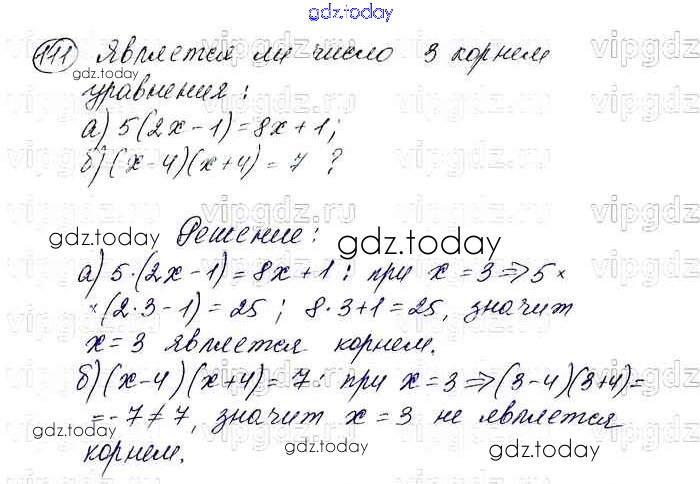 gdz.today
111 Является ли число 3 корнем
gdz.today
уравнения:
а) 5(2x-1)=8x+1;
б) (x-4)(x+4)=7 ?
Решение:
gdz.today
gdz.today
а) 5·(2x-1)=8x+1: при x=3=>5×
×(2·3-1)=25; 8·3+1=25, значит
x=3 является корнем.
б) (x-4)(x+4)=7. при x=3=>(3-4)(3+4)=
=-7≠7, значит x=3 не является
gdz.today
gdz.today
корнем.
vipgdz.ru